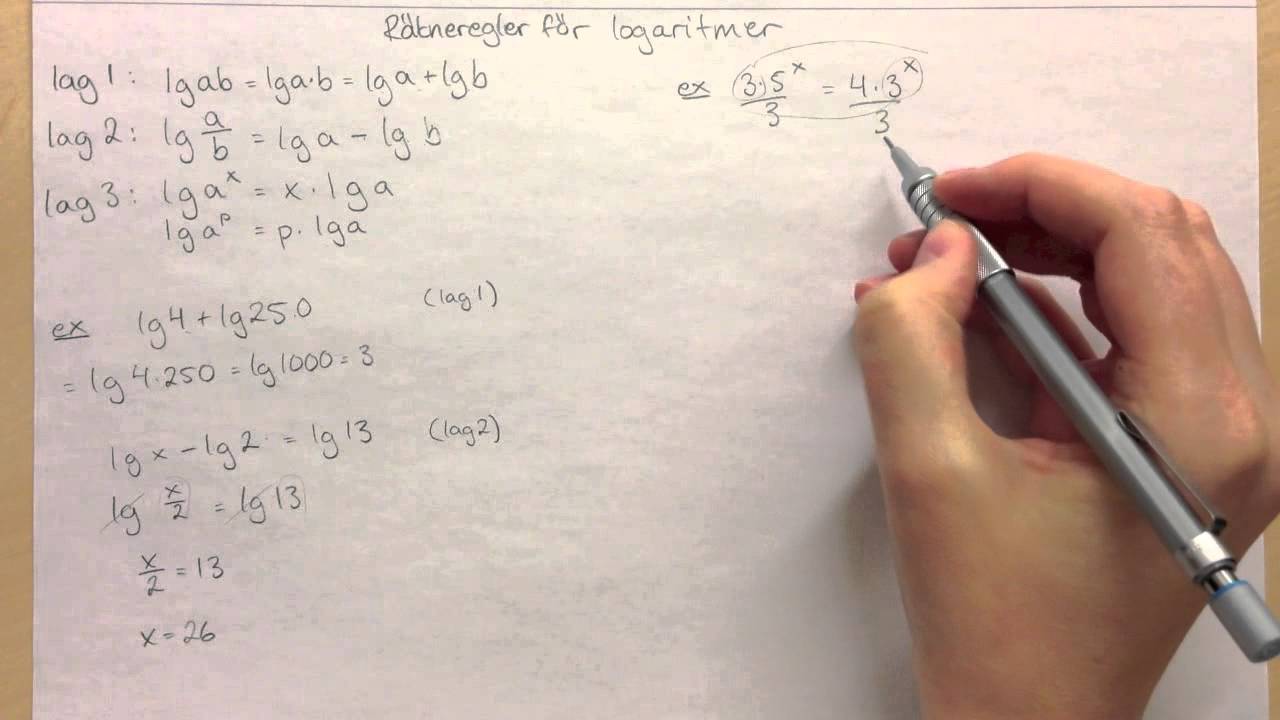 Räkneregler för logaritmer
lag 1: lg ab = lg a·b = lg a + lg b
lag 2: lg a/b = lg a - lg b
lag 3: lg a^x = x · lg a
lg a^p = p · lg a
ex lg 4 + lg 250 (lag 1)
= lg 4·250 = lg 1000 = 3
lg x - lg 2 = lg 13 (lag 2)
lg x/2 = lg 13
x/2 = 13
x = 26
ex 3·5^x/3 = 4·3^x/3